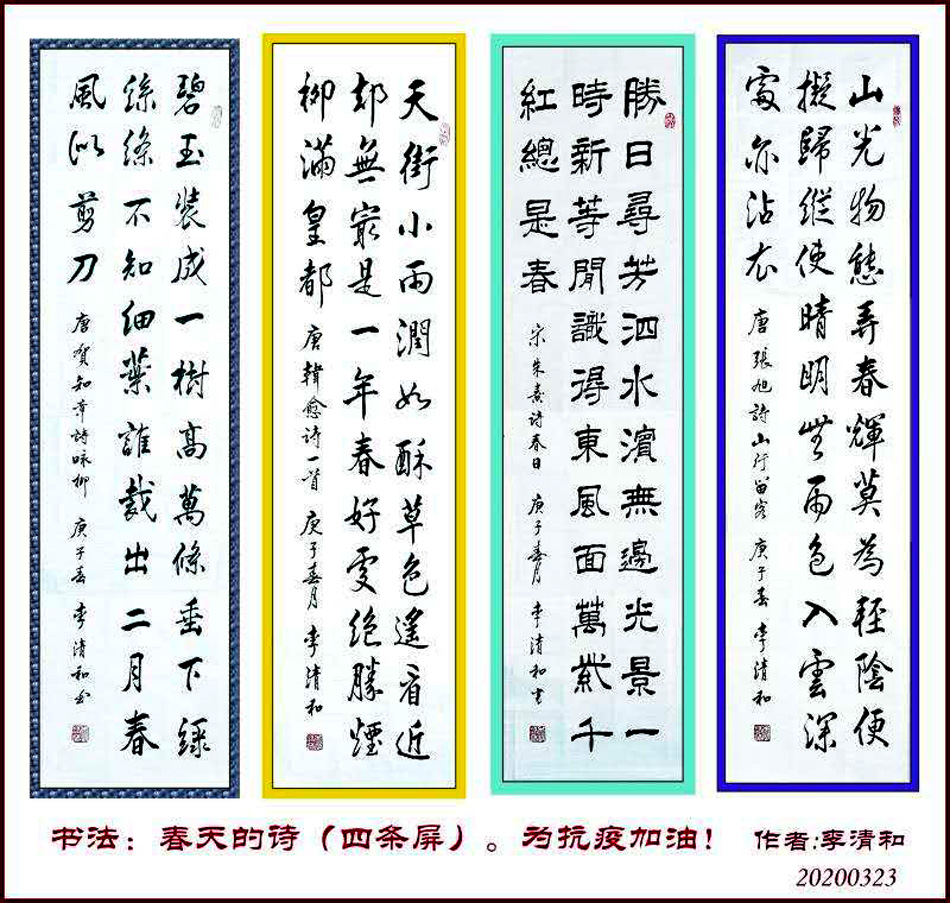 山光物態弄春輝莫為輕陰便
擬歸縱使晴明無雨色入雲深
處亦沾衣 唐張旭詩山行留客 庚子春 李清和
勝日尋芳泗水濱無邊光景一
時新等閒識得東風面萬紫千
紅總是春 宋朱熹诗春日 庚子春月 李清和书
天街小雨潤如酥草色遙看近
却無最是一年春好處絕勝煙
柳滿皇都 唐韓愈诗一首 庚子春月 李清和
碧玉裝成一樹高萬條垂下綠
絲絛不知細葉誰裁出二月春
風似剪刀 唐賀知章詩咏柳 庚子春 李清和书
书法：春天的诗（四条屏）。为抗疫加油！ 作者:李清和
20200323